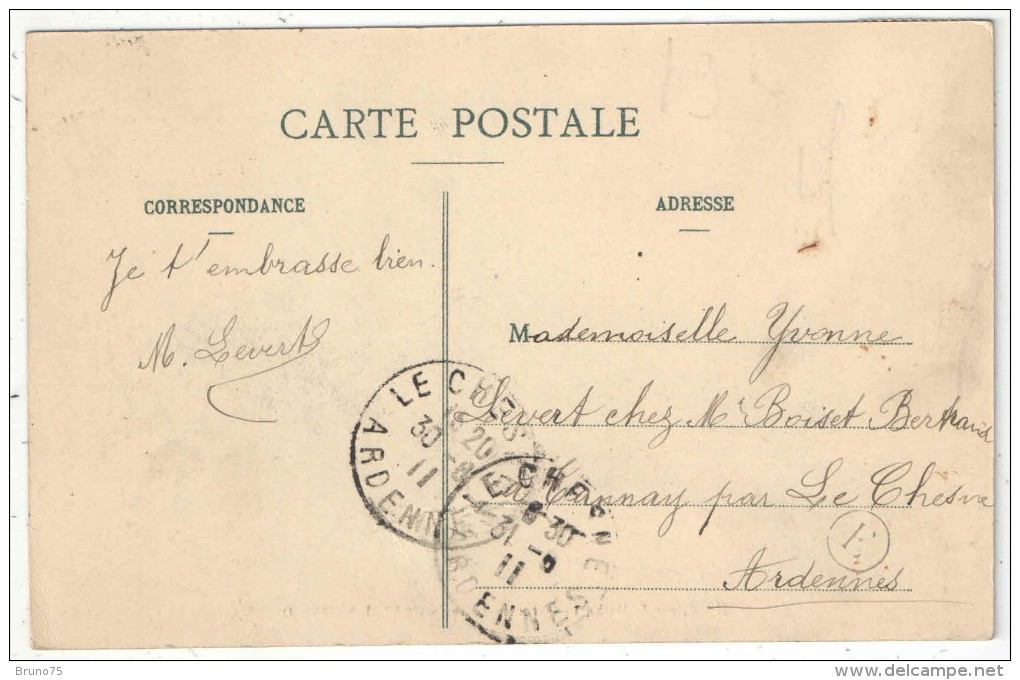 CARTE POSTALE
CORRESPONDANCE
Je t'embrasse bien.
M. Levert
ADRESSE
Mademoiselle Yvonne
Levert chez Mr Boiset Bertrand
à Cannay par Le Chesne
Ardennes
E
LE CHESNE
18 20
30 -8
11
ARDENNES
LE CHESNE
6 30
31 -8
11
ARDENNES
Bruno75
www.delcampe.net